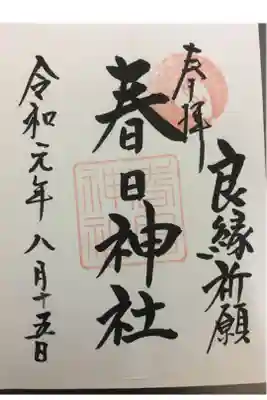 良縁祈願
奉拝
春日神社
令和元年八月十五日